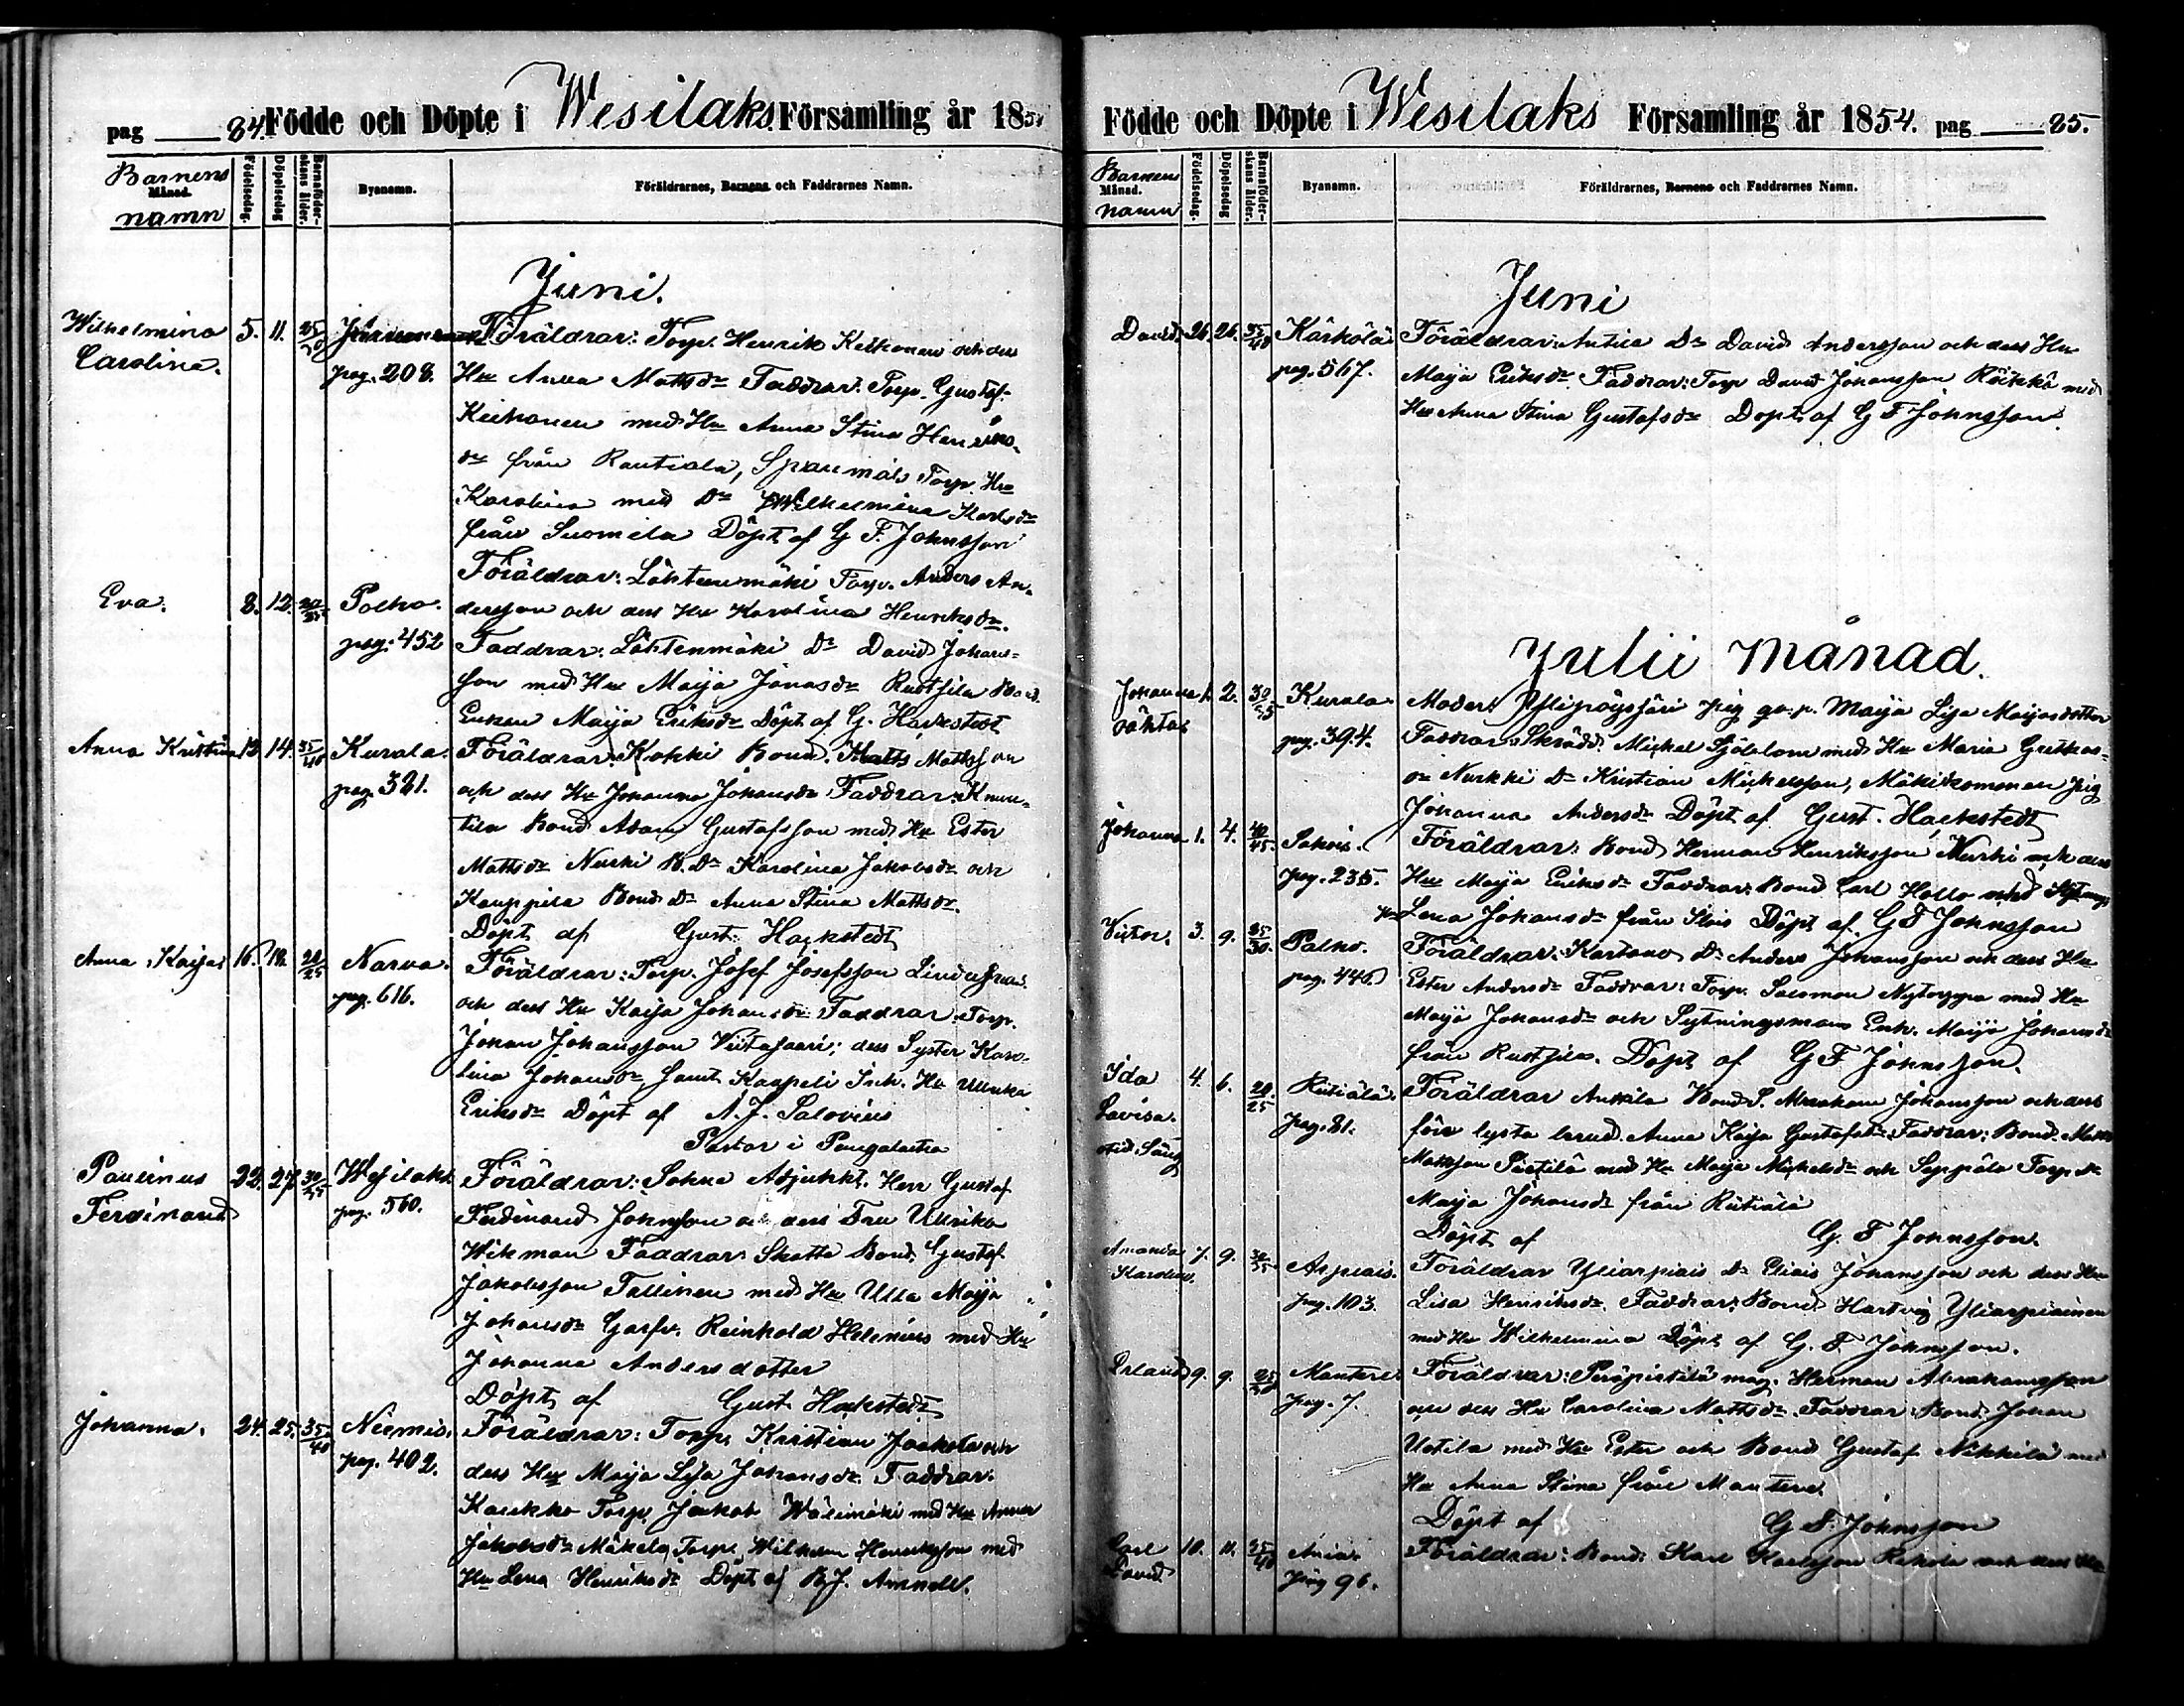 pag 84. Födde och Döpte i Wesilaks Församling år 185
Barnens
Månad.
namn
Födelsedag.
Döpelsedag
Barnaföderskans ålder.
Byanamn.
Föräldrarnes, Barnens och Faddrarnes Namn.
Juni.
Wilhelmina 5. 11. 25/30 Föräldrar: Torp. Henrik Keihonen och dess
Carolina. pag. 208. Hu Anna Mattsdr Faddrar: Torp. Gustaf
Keihonen med Hu Anna Stina Henriks
dr från Rautiala, Torp. Hu
Karolina med Dr Wilhelmina Karlsdr
från Suomela Döpt af G F. Johnsson
Föräldrar: Lähtenmäki Torp. Anders An-
Eva. 8. 12. Polho. dersson och dess Hu Karolina Henriksdr.
pag. 452 Faddrar: Lähtenmäki Dr David Johans-
son med Hu Maija Jonasdr Rustsila
Enkan Maija Eriksdr Döpt af G. Hackstedt
Anna Kristina 13. 14. 35/40 Kurala. Föräldrar: Kokki Bond. Matts Mattsson
pag. 321. och dess Hu Johanna Johansdr Faddrar:
tila Bond Adam Gustafsson med Hu Ester
Mattsdr Nurki B. Dr Karolina Jakobsdr och
Kauppila Bond Dr Anna Stina Mattsdr.
Döpt af Gust. Hackstedt
Anna Kaija 16. 18. 20/25 Narva. Föräldrar: Torp. Josef Josefsson
pag. 616. och dess Hu Kaija Johansdr Faddrar: Torp.
Johan Johansson Viitasaari; dess Syster Karo-
lina Johansdr, samt Kaapeli Inh. Hu Ulrika
Eriksdr Döpt af A. J. Salovius
Pastor i
Paulinus 22. 27. 30/35 Wesilaks Föräldrar: Sokne Adjunkt. Herr Gustaf
Ferdinand pag. 560. Ferdinand Johnsson och dess Fru Ulrika
Wikman Faddrar: Skatta Bond. Gustaf
Jakobsson Tallinen med Hu Ulla Maija
Johansdr Garfv. Reinhold Helenius med Hu
Johanna Andersdotter
Döpt af Gust Hackstedt
Johanna. 24. 25. 35/40 Niemis. Föräldrar: Torp. Kristian Jaakola och
pag. 402. dess Hu Maija Lisa Johansdr. Faddrar:
Kaukko Torp. Jakob Wälimäki med Hu Anna
Jakobsdr Mäkela Torp. Wilhelm Henriksson med
Hu Lena Henriksdr Döpt af B J. Amnell.
Födde och Döpte i Wesilaks Församling år 1854. pag 85.
Barnens
Månad.
namn
Födelsedag.
Döpelsedag
Barnaföderskans ålder.
Byanamn.
Föräldrarnes, Barnens och Faddrarnes Namn.
Juni
David 26. 26. Kärkölä Föräldrar: Dr David Andersson och dess Hu
pag. 567. Maija Eriksdr Faddrar: Torp David Johansson med
Hu Anna Stina Gustafsdr Döpt af G F Johnsson.
Julii Månad.
Johanna 1. 2. Kurala Moder: pig Maija Lisa Maijasdotter
oäkta pag. 394. Faddrar: Skrädd. Mickel Sjöblom med Hu Maria
dr Nurkki Dr Kristian Mickelsson, pig
Johanna Andersdr Döpt af Gust. Hackstedt
Johanna 1. 4. 40/45 Sakois. Föräldrar: Bond Herman Henriksson Nurki och dess
pag. 235. Hu Maija Eriksdr Faddrar: Bond Carl Hollo med
Lena Johansdr från Sois Döpt af G F Johnsson
Victor. 3. 9. 25/30 Palho. Föräldrar: Kartano Dr Anders Johansson och dess Hu
pag. 446 Ester Andersdr Faddrar: Torp. Salomon med Hu
Maija Johansdr och Sytningsmans Enk. Maija Johansdr
från Rustsila. Döpt af G F Johnsson.
Ida 4. 6. 20/25 Riitiälä. Föräldrar Anttila Bond S. Abraham Johansson och dess
Lovisa. pag. 81. före lysta brud. Anna Kaija Gustafsdr Faddrar: Bond. Matts
Mattsson med Hu Maija Mickelsdr och Seppälä Torp Dr
Maija Johansdr från Riitiälä
Döpt af G. F Johnsson.
Amanda 7. 9. Arpiais. Föräldrar Yliarpiais Dr Elias Johansson och dess Hu
Karolina. pag. 103. Lisa Henriksdr. Faddrar: Bond Hartvig Yliarpiainen
med Hu Wilhelmina Döpt af G. F Johnsson.
Erland 9. 9. Mantere Föräldrar: Peräpietilä mag. Herman Abrahamsson
pag. 7. och dess Hu Carolina Mattsdr. Faddrar: Bond. Johan
Uotila med Hu Ester och Bond Gustaf Nikkilä med
Hu Anna Stina från Mantere
Döpt af G F. Johnsson
Carl 10. 11. 35/40 Anias Föräldrar: Bond. Karl Karlsson och dess Hu
David pag 96.